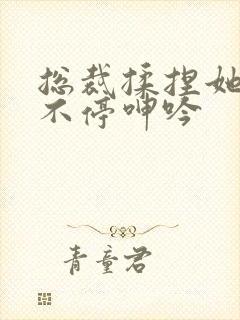 总裁揉捏她
不停呻吟
青童君